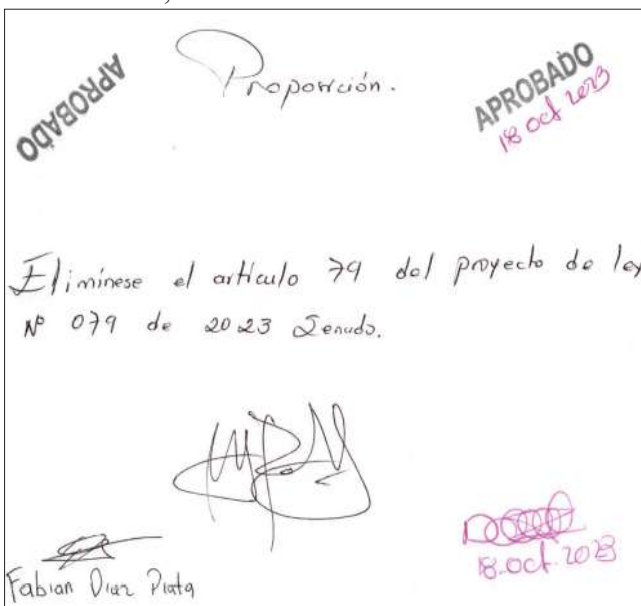 APROBADO
Proposición.
APROBADO
18 oct 2023
Elimínese el artículo 79 del proyecto de ley
Nº 079 de 2023 Senado.
18.oct.2023
Fabian Diaz Plata